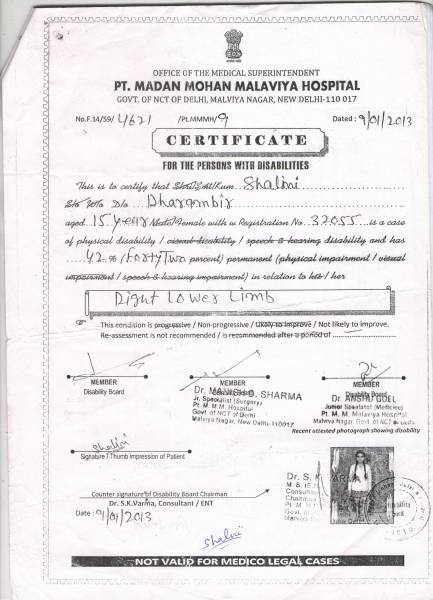 OFFICE OF THE MEDICAL SUPERINTENDENT
PT. MADAN MOHAN MALAVIYA HOSPITAL
GOVT. OF NCT OF DELHI, MALVIYA NAGAR, NEW DELHI-110 017
No.F.14/59/ 4621 /Pt.MMMH/ 9 Dated : 9/01/2013
CERTIFICATE
FOR THE PERSONS WITH DISABILITIES
This is to certify that Shri/Smt/Kum. Shalini
S/o W/o D/o Dharambir
aged 15 year Male/Female with Registration No. 32055 is a case
of physical disability / visual disability / speech & hearing disability and has
42 % (Forty Two percent) permanent (physical impairment / visual
impairment / speech & hearing impairment) in relation to his / her
Right Lower Limb
This condition is progressive / Non-progressive / Likely to improve / Not likely to improve.
Re-assessment is not recommended / is recommended after a period of
MEMBER
Disability Board
MEMBER
Dr. MANOJ D. SHARMA
Jr. Specialist (Surgery)
Pt. M. M. M. Hospital
Govt. of NCT of Delhi
Malviya Nagar, New Delhi-110017
MEMBER
Disability Board
Dr. ANSHU GOEL
Junior Specialist (Medicine)
Pt. M. M. Malaviya Hospital
Malviya Nagar, Govt. of NCT
Recent attested photograph showing disability
Shalini
Signature / Thumb impression of Patient
Counter signature of Disability Board Chairman
Dr. S.K.Varma, Consultant / ENT
Date : 9/01/2013
Dr. S. K
M. S. (E
Consultant
Chairman
Pt. M
Govt. of
Malviya
Shalini
NOT VALID FOR MEDICO LEGAL CASES